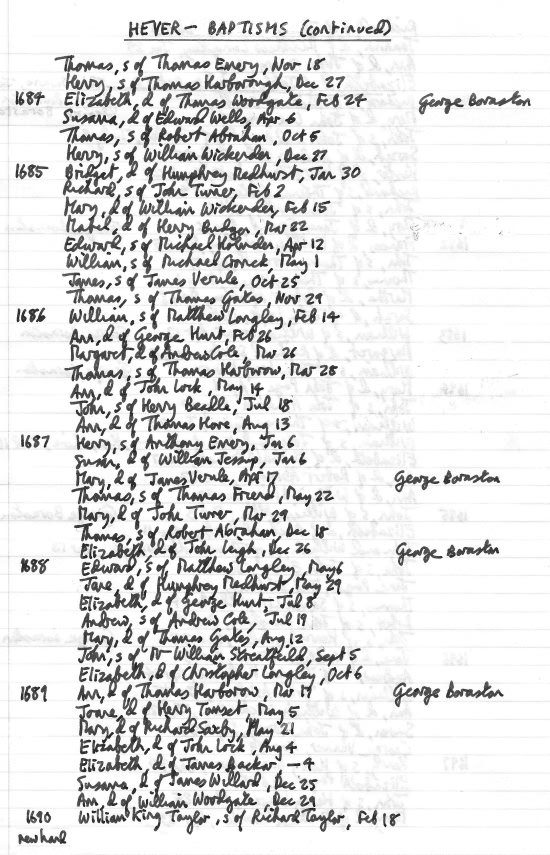 HEVER — BAPTISMS (continued)
Thomas, s of Thomas Emery, Nov 18
Henry, s of Thomas Harborough, Dec 27
1684 Elizabeth, d of Thomas Woodgate, Feb 24 George Boraston
Susana, d of Edward Wells, Apr 6
Thomas, s of Robert Abrahan, Oct 5
Henry, s of William Wickenden, Dec 27
1685 Bridget, d of Humphrey Medhurst, Jan 30
Richard, s of John Turner, Feb 2
Mary, d of William Wickenden, Feb 15
Mabel, d of Henry Badger, Mar 22
Edward, s of Michael, Apr 12
William, s of Michael Cronck, May 1
James, s of James Verule, Oct 25
Thomas, s of Thomas Gates, Nov 29
1686 William, s of Matthew Longley, Feb 14
Ann, d of George Hunt, Feb 26
Margaret, d of Andrew Cole, Mar 26
Thomas, s of Thomas Harborow, Mar 28
Ann, d of John Lock, May 14
John, s of Henry Bealle, Jul 18
Ann, d of Thomas Hore, Aug 13
1687 Henry, s of Anthony Emery, Jan 6
Susan, d of William Jessup, Jan 6
Mary, d of James Verule, Apr 17 George Boraston
Thomas, s of Thomas Friend, May 22
Mary, d of John Turner, Mar 29
Thomas, s of Robert Abrahan, Dec 18
Elizabeth, d of John Leigh, Dec 26 George Boraston
1688 Edward, s of Matthew Longley, May 6
Jane, d of Humphrey Medhurst, May 29
Elizabeth, d of George Hunt, Jul 8
Andrew, s of Andrew Cole, Jul 19
Mary, d of Thomas Gates, Aug 12
John, s of Mr William Streatfeild, Sept 5
Elizabeth, d of Christopher Longley, Oct 6
1689 Ann, d of Thomas Harborow, Mar 17 George Boraston
Joane, d of Henry Tomset, May 5
Mary, d of Richard Saxby, May 21
Elizabeth, d of John Lock, Aug 4
Elizabeth, d of James Backar — 4
Susana, d of James Willard, Dec 25
Ann, d of William Woodgate, Dec 29
1690 William King Taylor, s of Richard Taylor, Feb 18
new hand